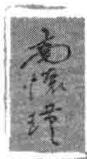 南懷瑾